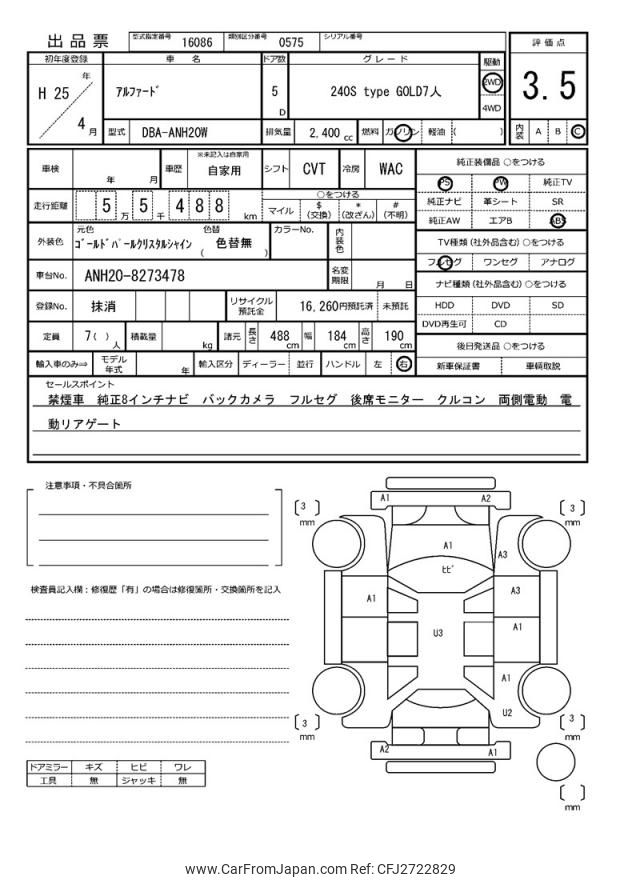 出品票 型式指定番号 16086 類別区分番号 0575 シリアル番号
評価点
3.5
初年度登録 車名 ドア数 グレード 駆動
H 25 年 4 月
アルファード 5 D 240S type GOLD7人 2WD 4WD
型式 DBA-ANH20W 排気量 2,400 cc 燃料 ガソリン 軽油 ( )
内装 A B C
車検 年 月 車歴 ※未記入は自家用 自家用 シフト CVT 冷房 WAC
走行距離 5 万 5 千 4 8 8 km
○をつける
マイル $ (交換) * (改ざん) # (不明)
外装色 元色 ゴールドパールクリスタルシャイン 色替 ( 色替無 ) カラーNo. 内装色
車台No. ANH20-8273478 名変期限 月 日
登録No. 抹消 リサイクル預託金 16,260円預託済 未預託
定員 7( ) 人 積載量 kg 諸元 長さ 488 cm 幅 184 cm 高さ 190 cm
輸入車のみ⇒ モデル年式 年 輸入区分 ディーラー 並行 ハンドル 左 右
純正装備品 ○をつける
PS PW 純正TV
純正ナビ 革シート SR
純正AW エアB ABS
TV種類(社外品含む)○をつける
フルセグ ワンセグ アナログ
ナビ種類(社外品含む)○をつける
HDD DVD SD
DVD再生可 CD
後日発送品 ○をつける
新車保証書 車輌取説
セールスポイント
禁煙車 純正8インチナビ バックカメラ フルセグ 後席モニター クルコン 両側電動 電
動リアゲート
注意事項・不具合箇所
検査員記入欄：修復歴「有」の場合は修復箇所・交換箇所を記入
ドアミラー キズ ヒビ ワレ
工具 無 ジャッキ 無
A1 A2
[ 3 ] mm
[ 3 ] mm
A1
A3
ヒビ
A1
A3
U3
A1
A1
U2
[ 3 ] mm
[ 3 ] mm
A2 A1
[ ] mm
www.CarFromJapan.com Ref: CFJ2722829